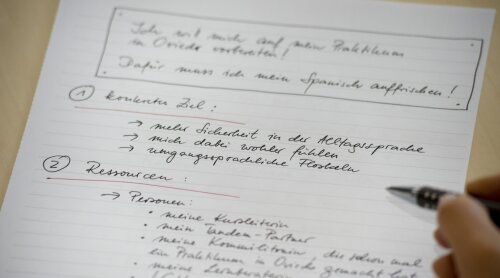 Ich will mich auf mein Praktikum
in Oviedo vorbereiten!
Dafür muss ich mein Spanisch auffrischen!
① konkretes Ziel:
→ mehr Sicherheit in der Alltagssprache
→ mich dabei wohler fühlen
→ umgangssprachliche Floskeln
② Ressourcen:
→ Personen:
• meine Kursleiterin
• mein Tandem-Partner
• meine Kommilitonin, die schon mal
ein Praktikum in Oviedo gemacht hat
• meine Lernberaterin